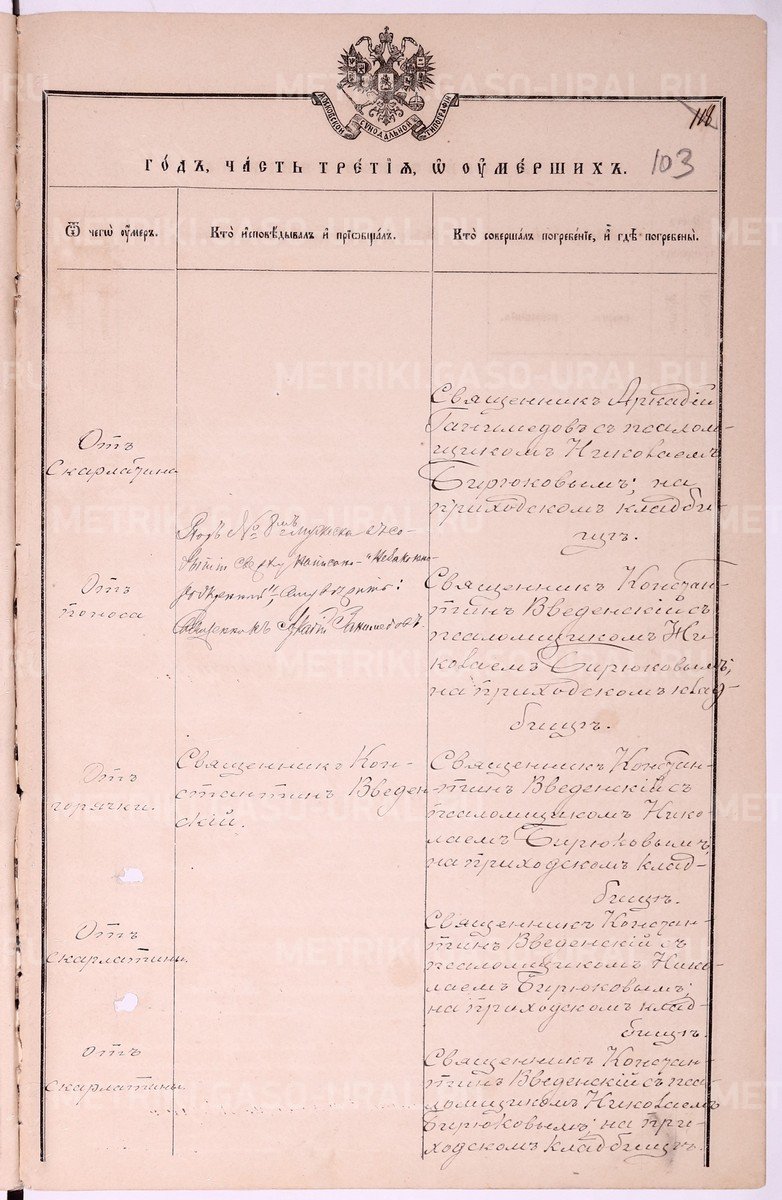 МОСКОВСКОЙ СѴНОДАЛЬНОЙ ТИПОГРАФІИ
118
103
го́дъ, ча́сть тре́тїѧ, ѽ оу҆ме́ршихъ.
Ѿ чегѡ̀ оу҆́меръ.
Кто̀ и҆сповѣ́дывалъ и҆ прїѡбща́лъ.
Кто̀ соверша́лъ погребе́нїе, и҆ гдѣ̀ погребены̀.
Отъ
Скарлатина
Священникъ Аркадій
Ганимедовъ съ псалом-
щикомъ Николаемъ
Бирюковымъ; на
приходскомъ кладби-
щѣ.
Отъ
поноса
Подъ № 8мъ мужска
сверху написано "незаконно-
рожденный",
Священникъ Аркадій Ганимедовъ.
Священникъ Констан-
тинъ Введенскій съ
псаломщикомъ Ни-
колаемъ Бирюковымъ;
на приходскомъ клад-
бищѣ.
Отъ
горячки.
Священникъ Кон-
стантинъ Введен-
скій.
Священникъ Констан-
тинъ Введенскій съ
псаломщикомъ Нико-
лаемъ Бирюковымъ
на приходскомъ клад-
бищѣ.
Отъ
Скарлатины.
Священникъ Констан-
тинъ Введенскій съ
псаломщикомъ Нико-
лаемъ Бирюковымъ;
на приходскомъ клад-
бищѣ.
отъ
скарлатины.
Священникъ Констан-
тинъ Введенскій съ пса-
ломщикомъ Николаемъ
Бирюковымъ; на при-
ходскомъ кладбищѣ.
METRIKI.GASO-URAL.RU